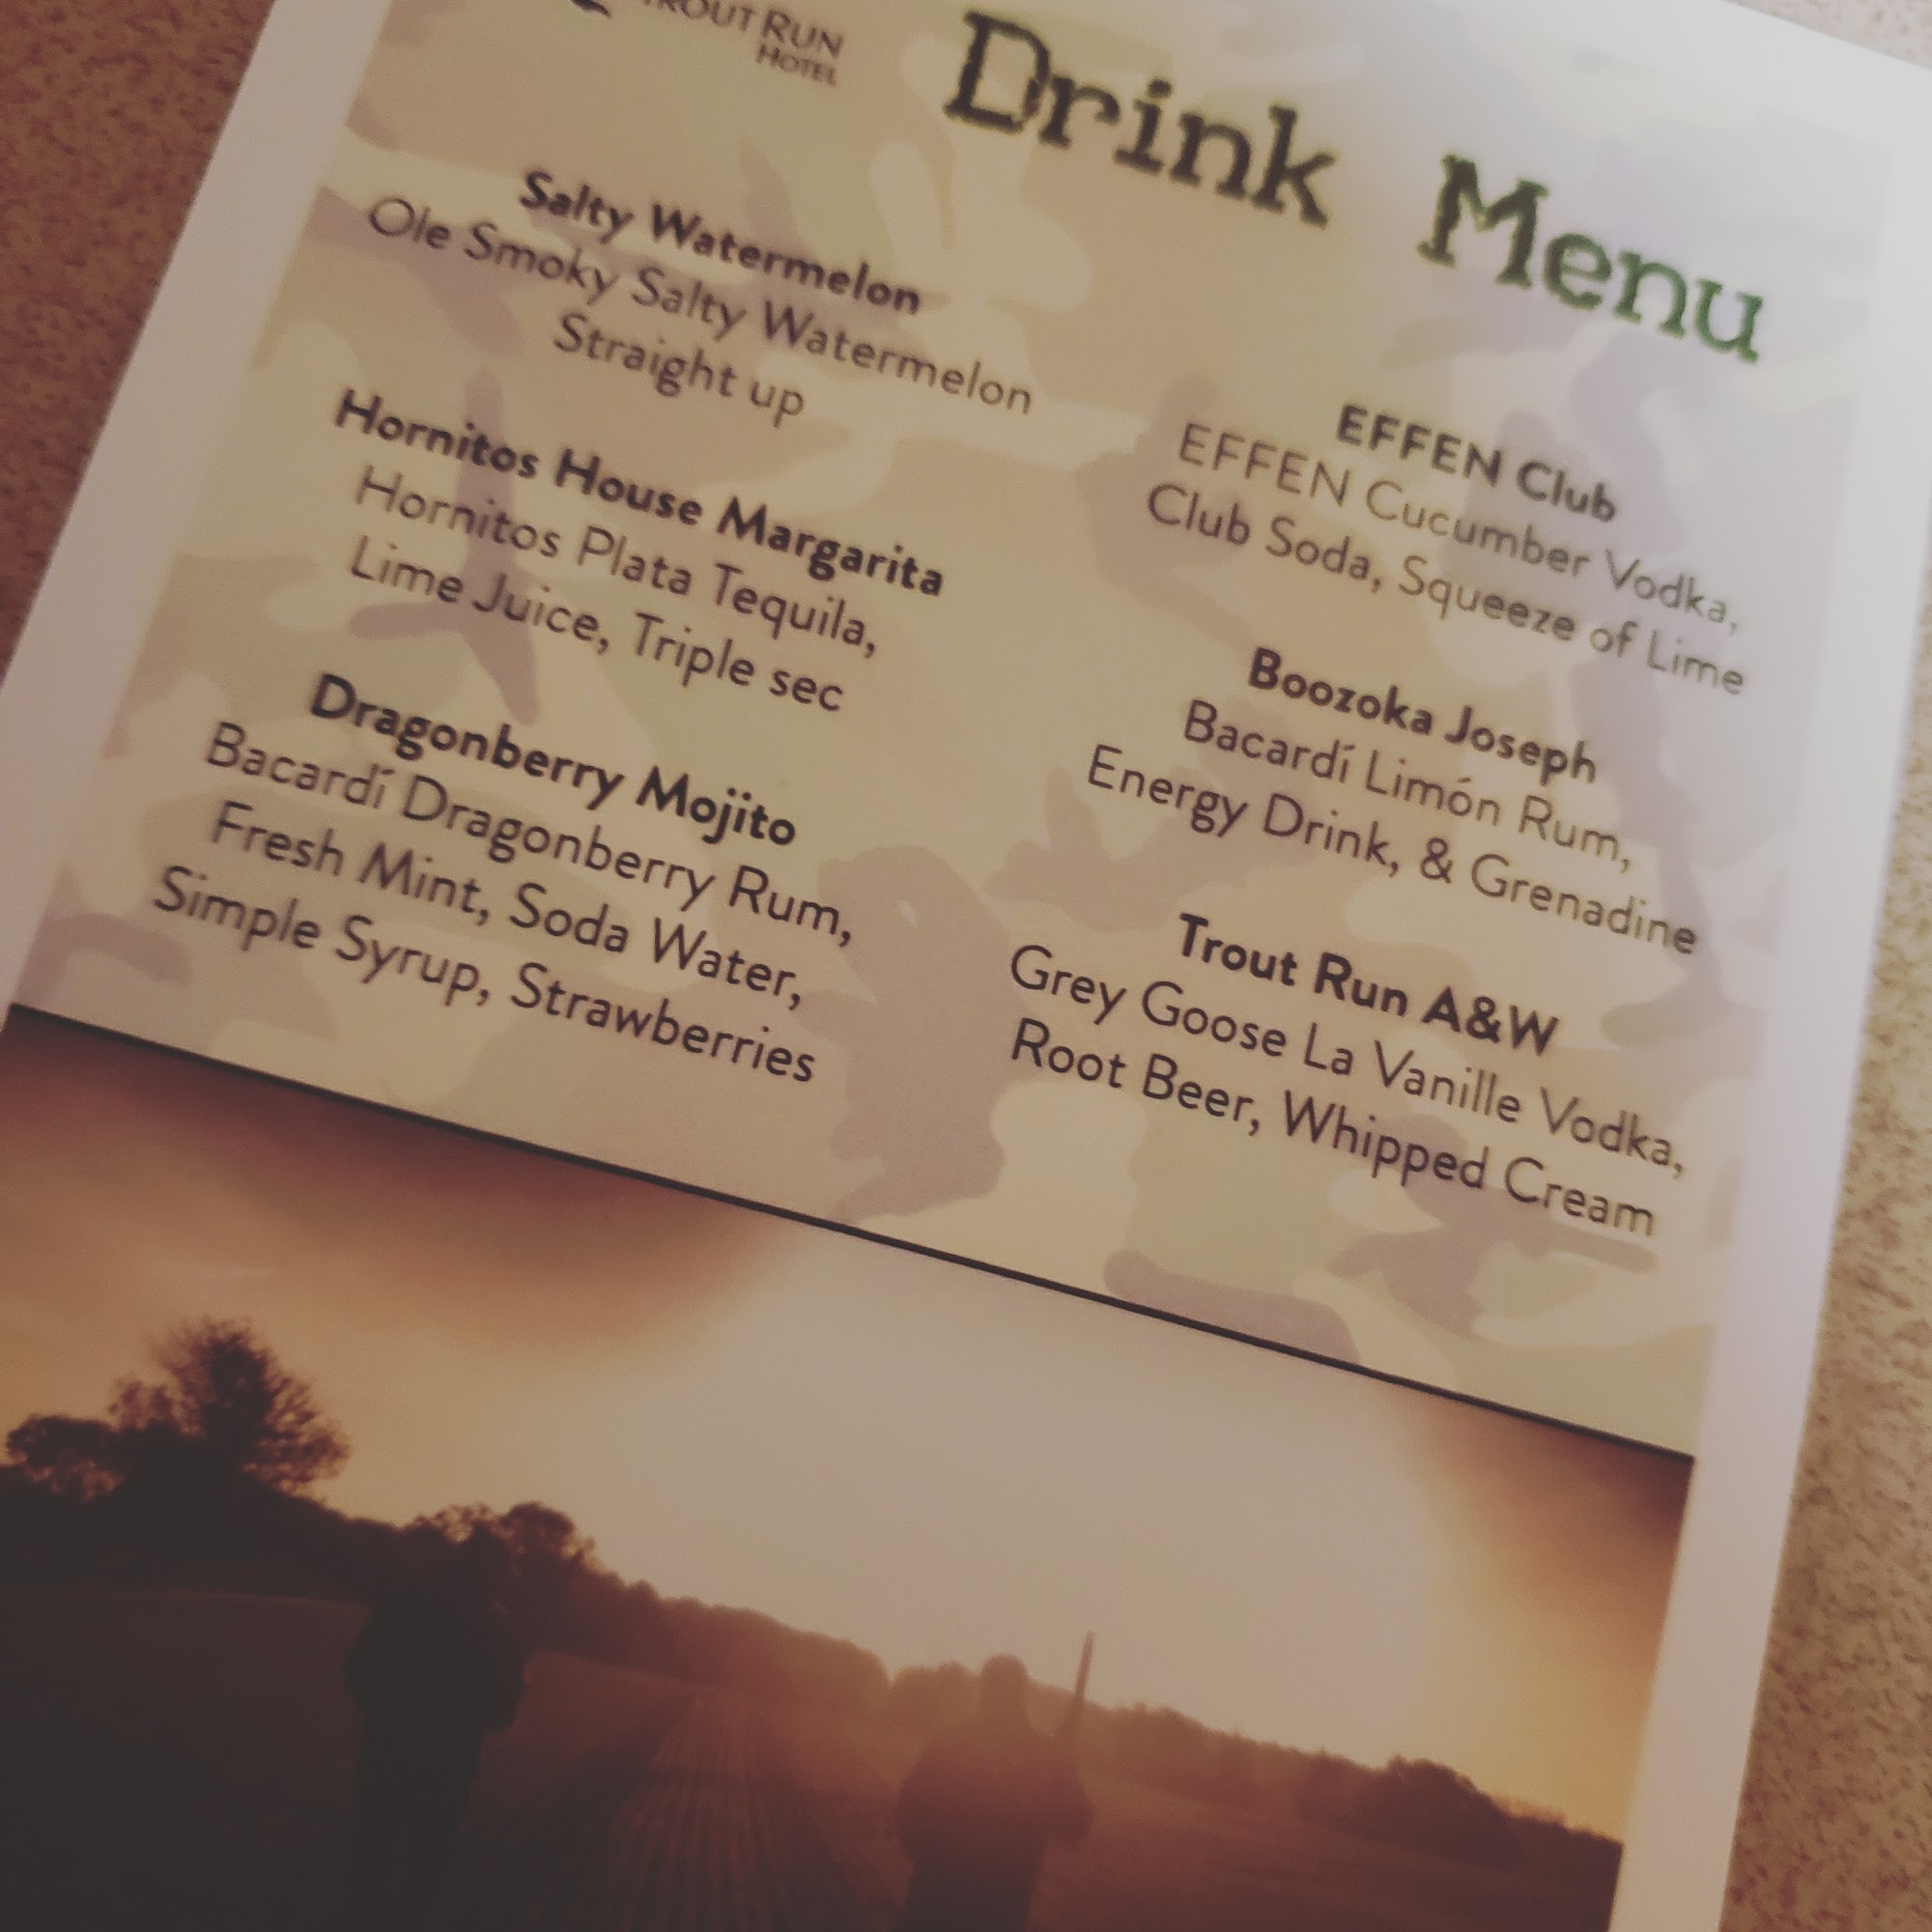 TROUT RUN
HOTEL
Drink Menu
Salty Watermelon
Ole Smoky Salty Watermelon
Straight up
Hornitos House Margarita
Hornitos Plata Tequila,
Lime Juice, Triple sec
Dragonberry Mojito
Bacardí Dragonberry Rum,
Fresh Mint, Soda Water,
Simple Syrup, Strawberries
EFFEN Club
EFFEN Cucumber Vodka,
Club Soda, Squeeze of Lime
Boozoka Joseph
Bacardí Limón Rum,
Energy Drink, & Grenadine
Trout Run A&W
Grey Goose La Vanille Vodka,
Root Beer, Whipped Cream